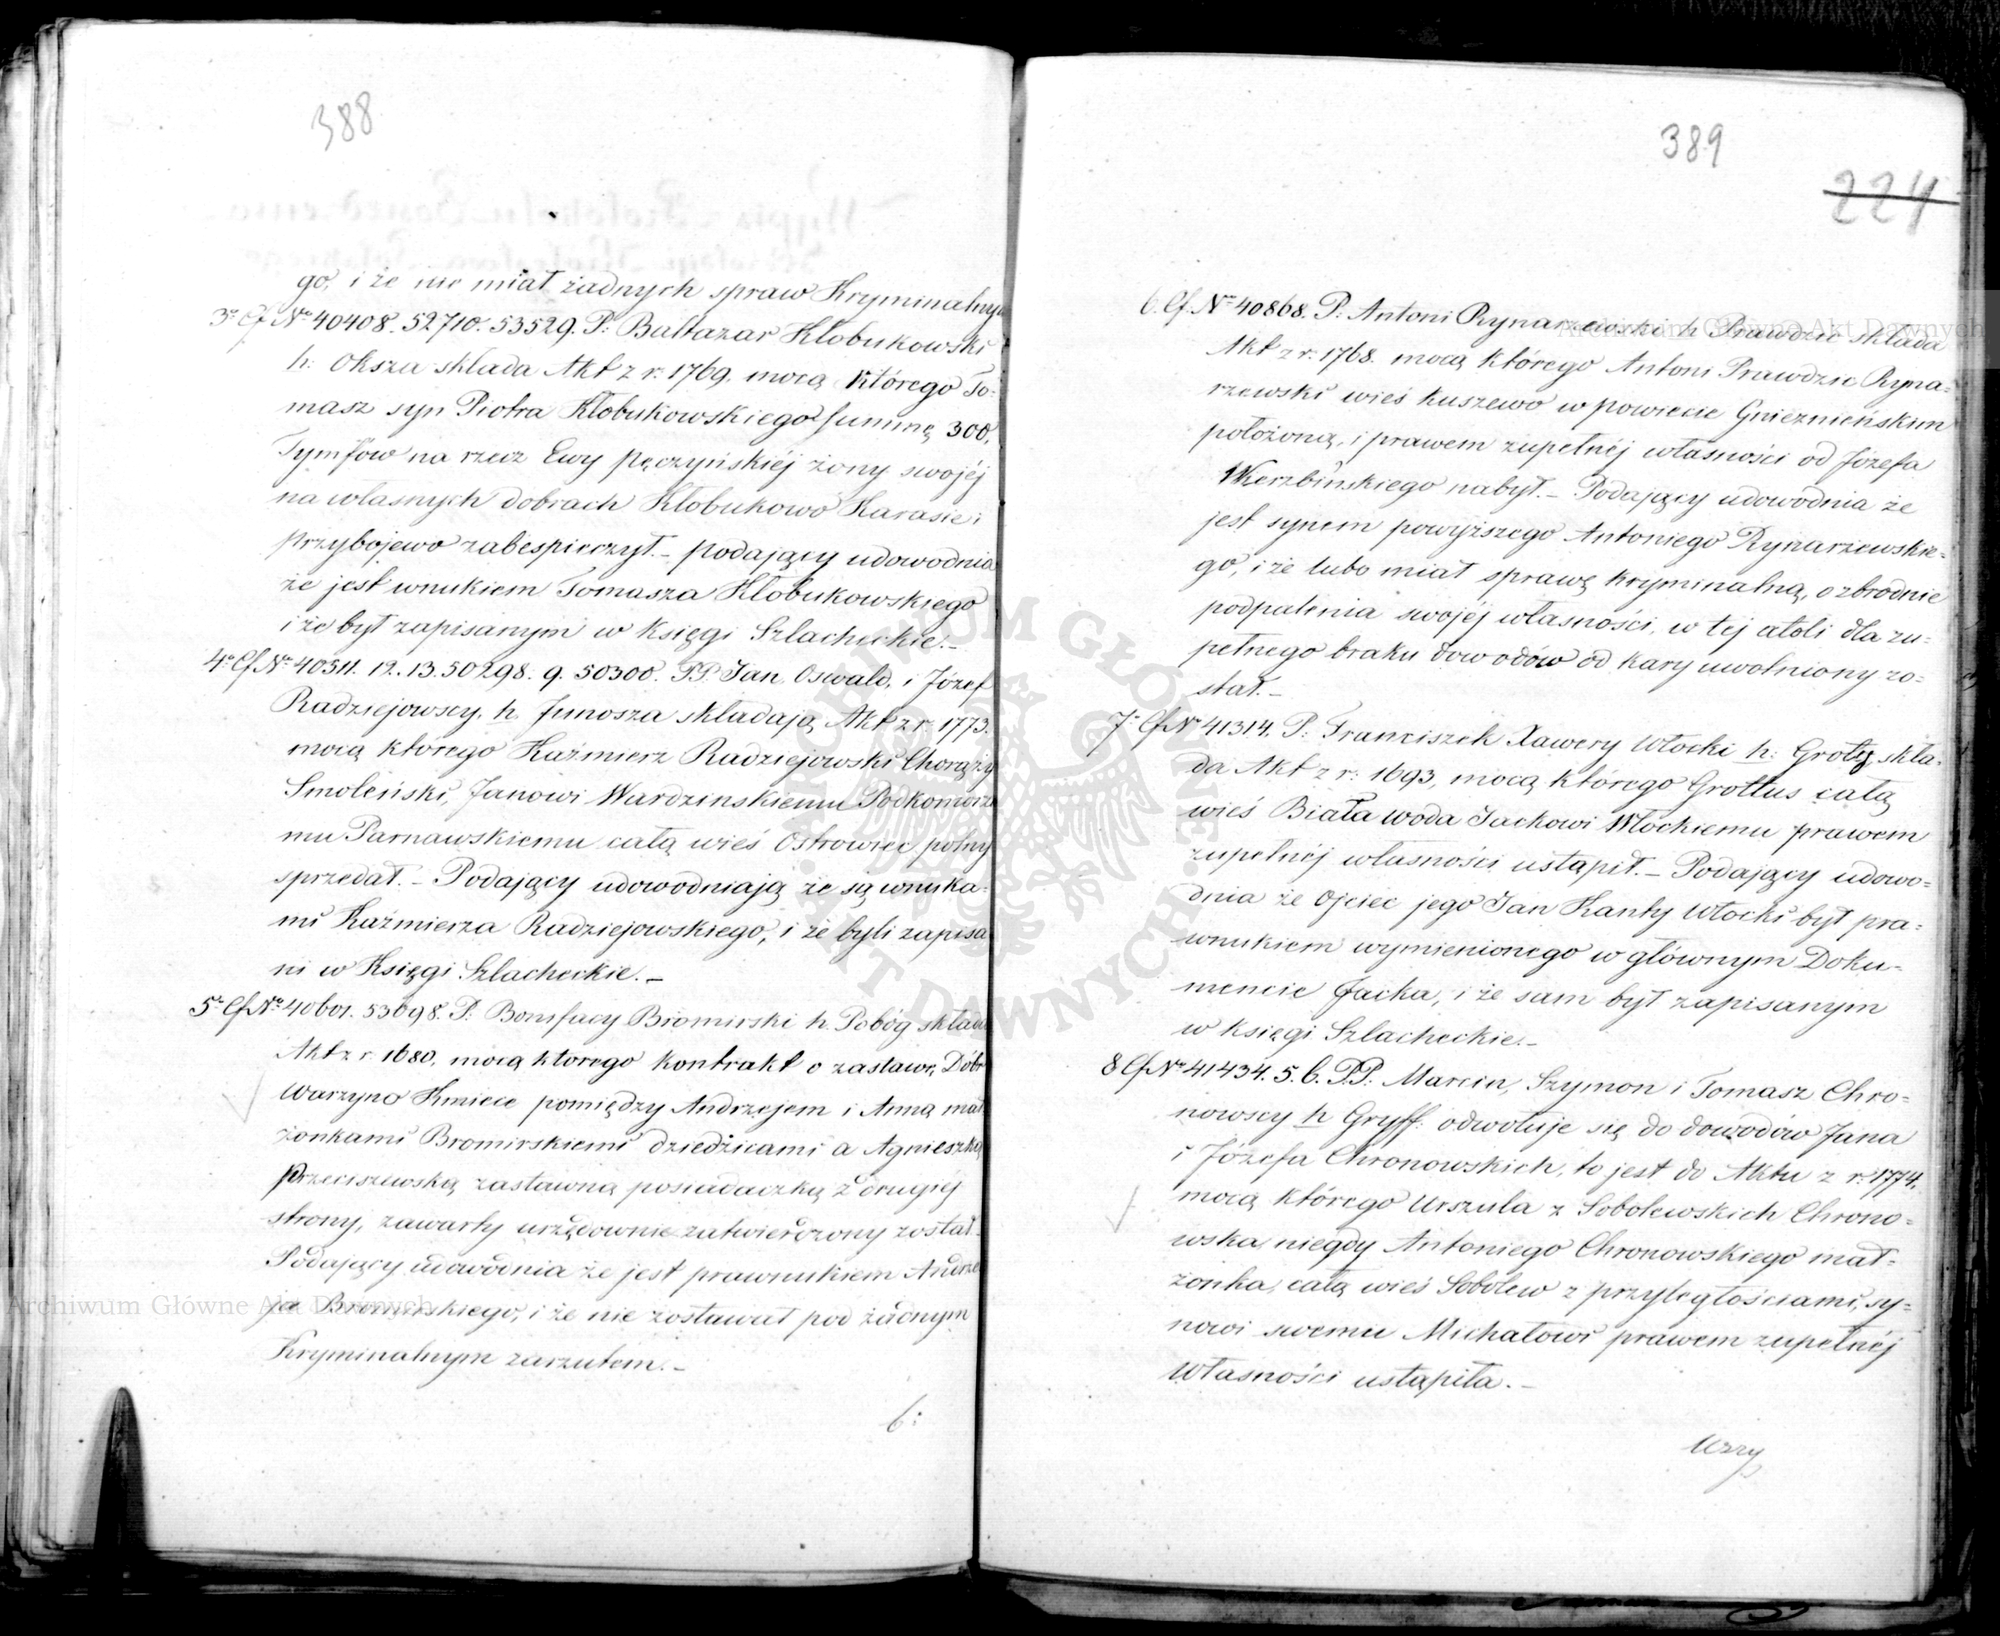 388
go, i że nie miał żadnych spraw Kryminalnych
3º Cf Nº 40408. 52710. 53529. P: Baltazar Kłobukowski
h: Oksza składa Akt z r: 1769. mocą którego To-
masz syn Piotra Kłobukowskiego summę 300.
Tymfów na rzecz Ewy Pęczyńskiéj żony swojéj
na własnych dobrach Kłobukowo Karasie i
przybojewo zabespieczył. – Podający udowodnia
że jest wnukiem Tomasza Kłobukowskiego
i że był zapisanym w Księgi Szlacheckie. –
4º Cf. Nº 40311. 12. 13. 50298. 9. 50300. PP. Jan, Oswald, i Józef
Radziejowscy, h. Junosza składają Akt z r: 1773.
mocą którego Kaźmierz Radziejowski Chorąży
Smoleński, Janowi Wardzinskiemu Podkomorze
mu Parnawskiemu całą wieś Ostrowiec polny
sprzedał. – Podający udowodniają że są wnuka-
mi Kaźmierza Radziejowskiego, i że byli zapisa
ni w Księgi Szlacheckie. –
5º Cf. Nº 40601. 53098. P: Bonifacy Bromirski h. Pobóg składa
Akt z r. 1680, mocą ktorego kontrakt o zastawę Dóbr
Warzyno Kmiece pomiędzy Andrzejem i Anną mał
żonkami Bromirskiemi dziedzicami a Agnieszką
Przeciszewską zastawną posiadaczką z drugiej
strony, zawarty urzędownie zatwierdzony został –
Podający udowodnia że jest prawnukiem Andrze
ja Bromirskiego, i że nie zostawał pod żadnym
Kryminalnym zarzutem. –
6:
389
224
6. Cf. Nº 40868. P: Antoni Rynarzewski h Prawdzic składa
Akt z r: 1768. mocą którego Antoni Prawdzic Ryna-
rzewski wieś Kuszewo w powiecie Gnieznieńskim
położoną, i prawem zupełnéj własności od Józefa
Wierzbińskiego nabył. – Podający udowodnia że
jest synem powyższego Antoniego Rynarzewskie-
go, i że lubo miał sprawę kryminalną, o zbrodnie
podpalenia swojéj własności, w tej atoli dla zu-
pełnego braku dowodów od kary uwolniony zo-
stał. –
7º Cf Nº 41314. P: Franciszek Xawery Włocki h: Groty skła-
da Akt z r: 1693, mocą którego Grottus całą
wieś Biała woda Jackowi Włockiemu prawem
zupełnéj własności ustąpił. – Podający udowo-
dnia że Ojciec jego Jan Kanty Włocki był pra-
wnukiem wymienionego w głównym Doku-
mencie Jacka, i że sam był zapisanym
w księgi Szlacheckie. –
8 Cf Nº 41434. 5. 6. P.P: Marcin, Szymon i Tomasz Chro-
nowscy h Gryff. odwołuje się do dowodów Jana
i Józefa Chronowskich, to jest do Aktu z r: 1774.
mocą którego Urszula z Sobolewskich Chrono-
wska, niegdy Antoniego Chronowskiego mał-
żonka, całą wieś Sobolew z przyległościami, sy-
nowi swemu Michałowi prawem zupełnéj
własności ustąpiła. –
Uzzy
Archiwum Główne Akt Dawnych
Archiwum Główne Akt Dawnych
ARCHIWUM GŁÓWNE AKT DAWNYCH